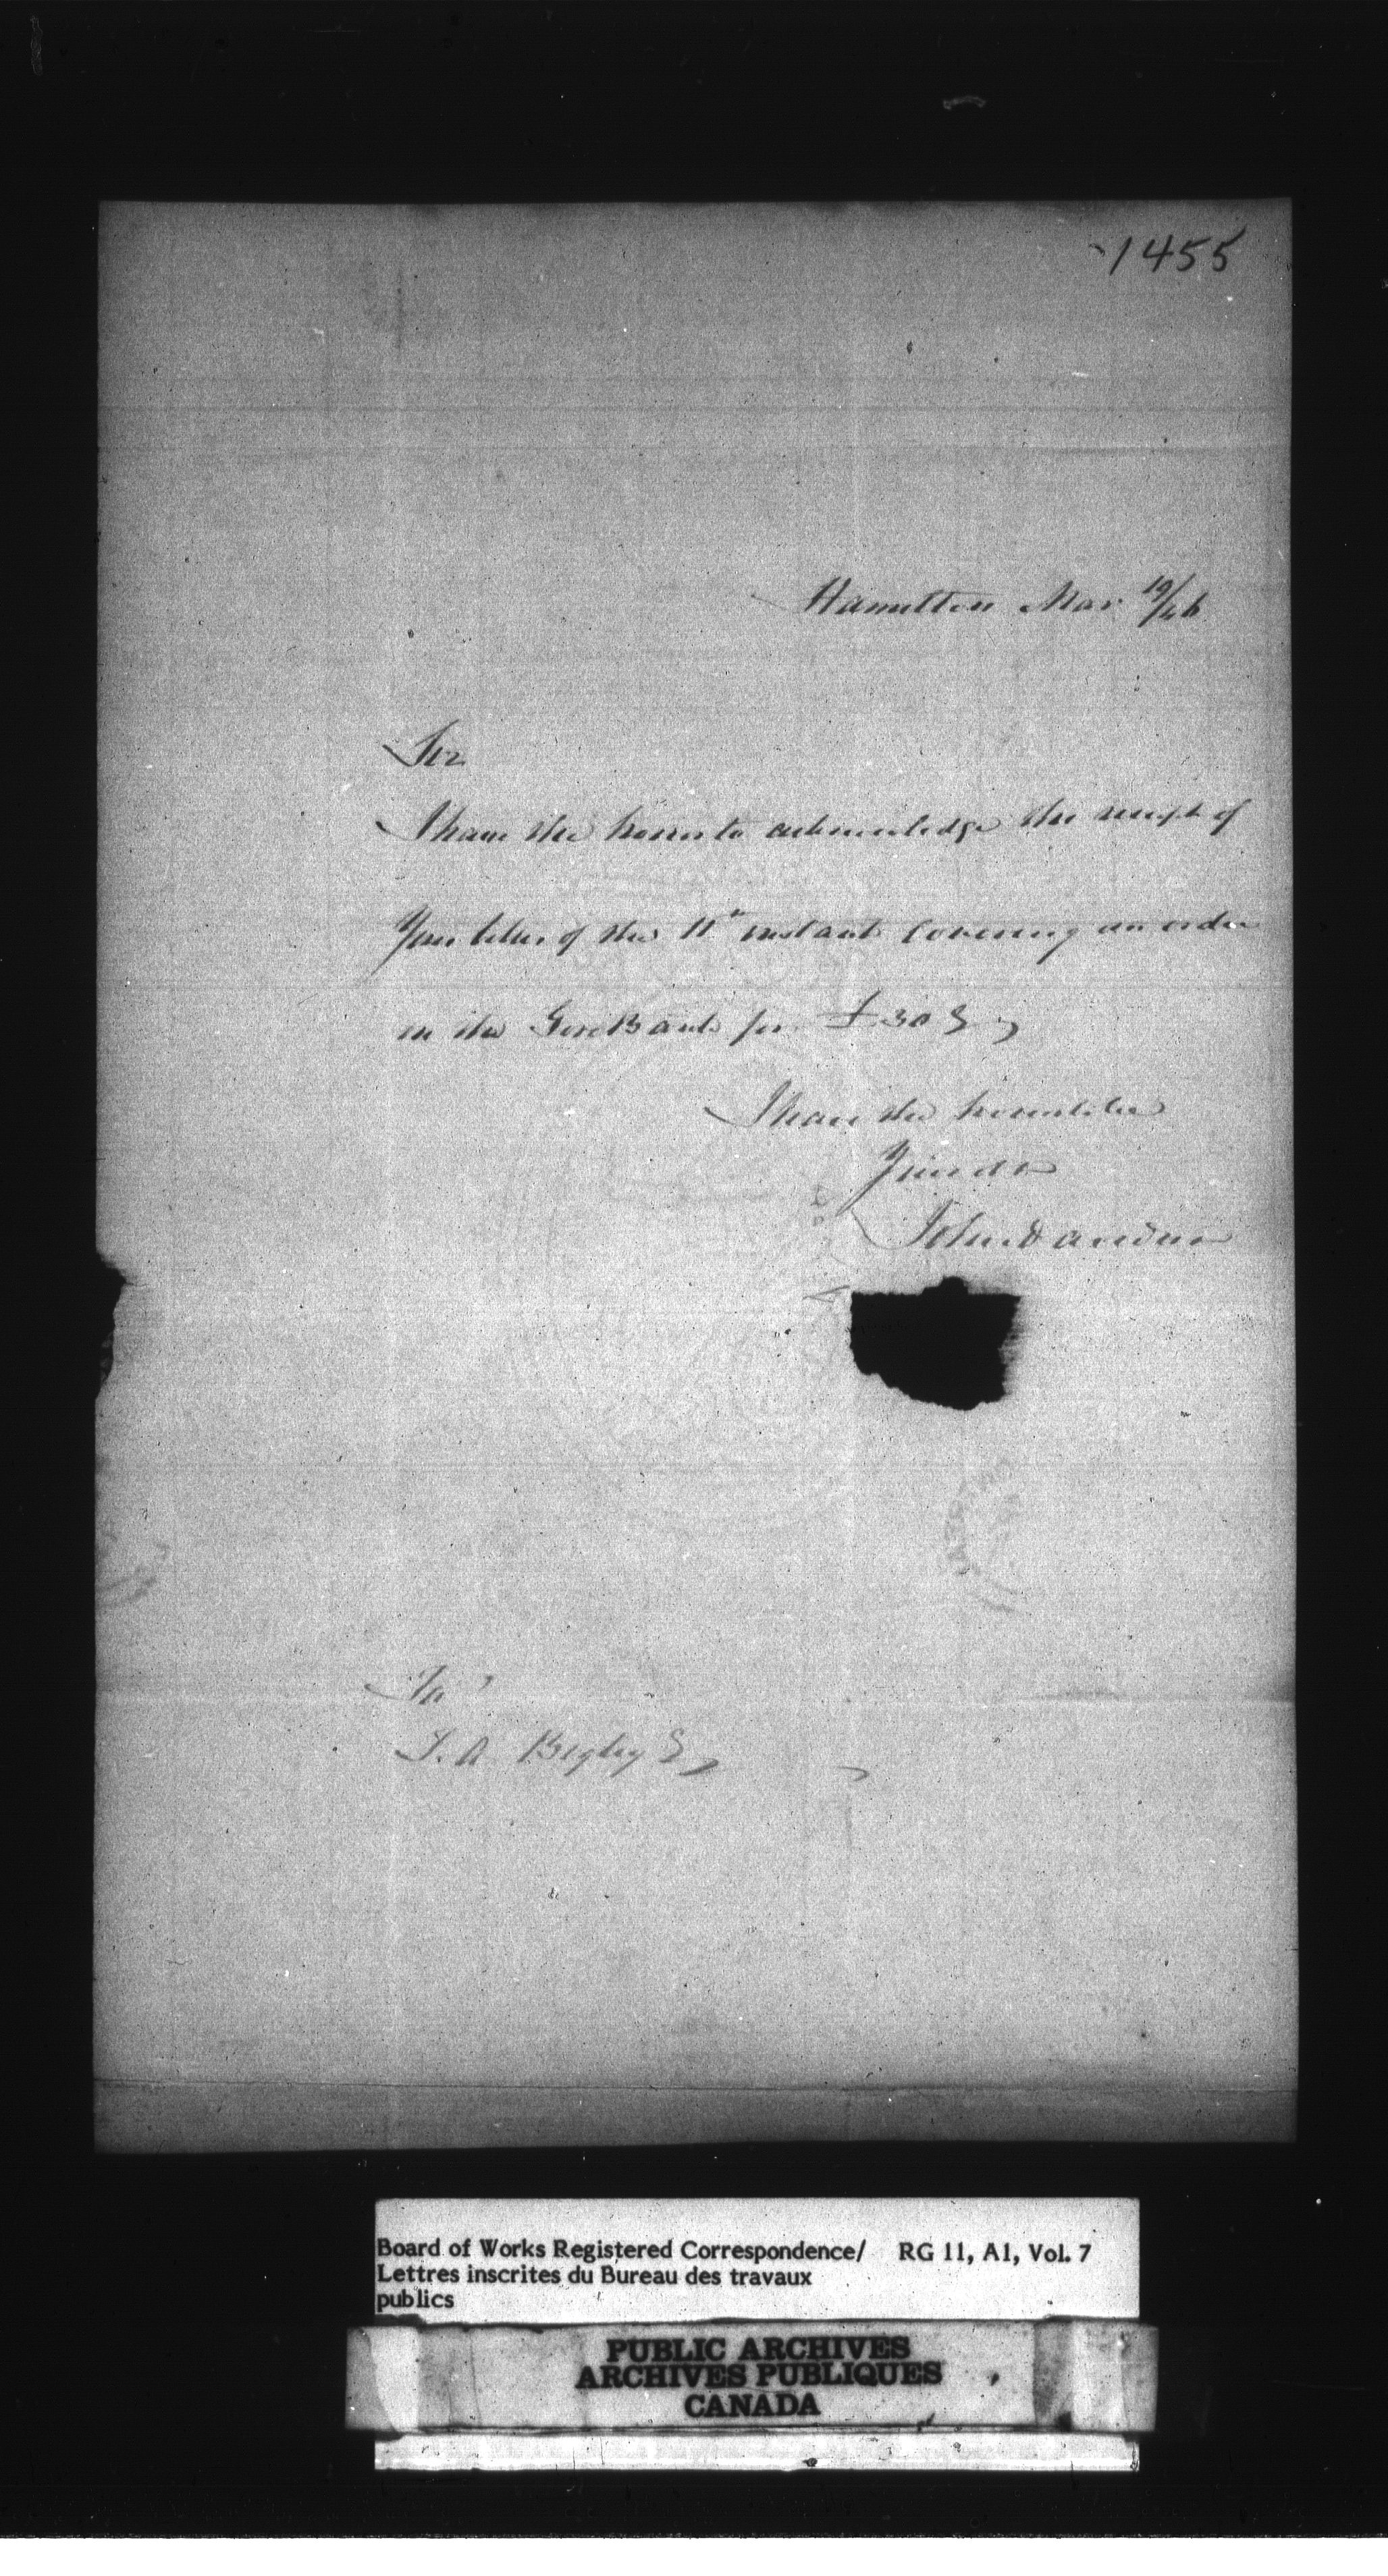 1455
Hamilton Mar 19/46
Sir
I have the honor to acknowledge the receipt of
Your letter of the 11th instant Covering an order
on the Gore Bank for £30
I have the honor to be
Yours &c
John
To
T. A Begley E
Board of Works Registered Correspondence/ RG 11, A1, Vol. 7
Lettres inscrites du Bureau des travaux
publics
PUBLIC ARCHIVES
ARCHIVES PUBLIQUES
CANADA